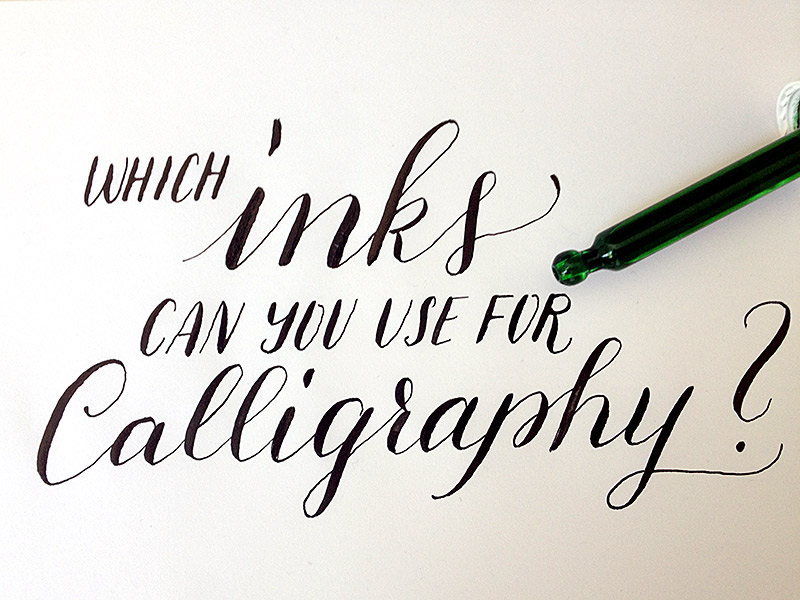 WHICH inks
CAN YOU USE FOR
Calligraphy?